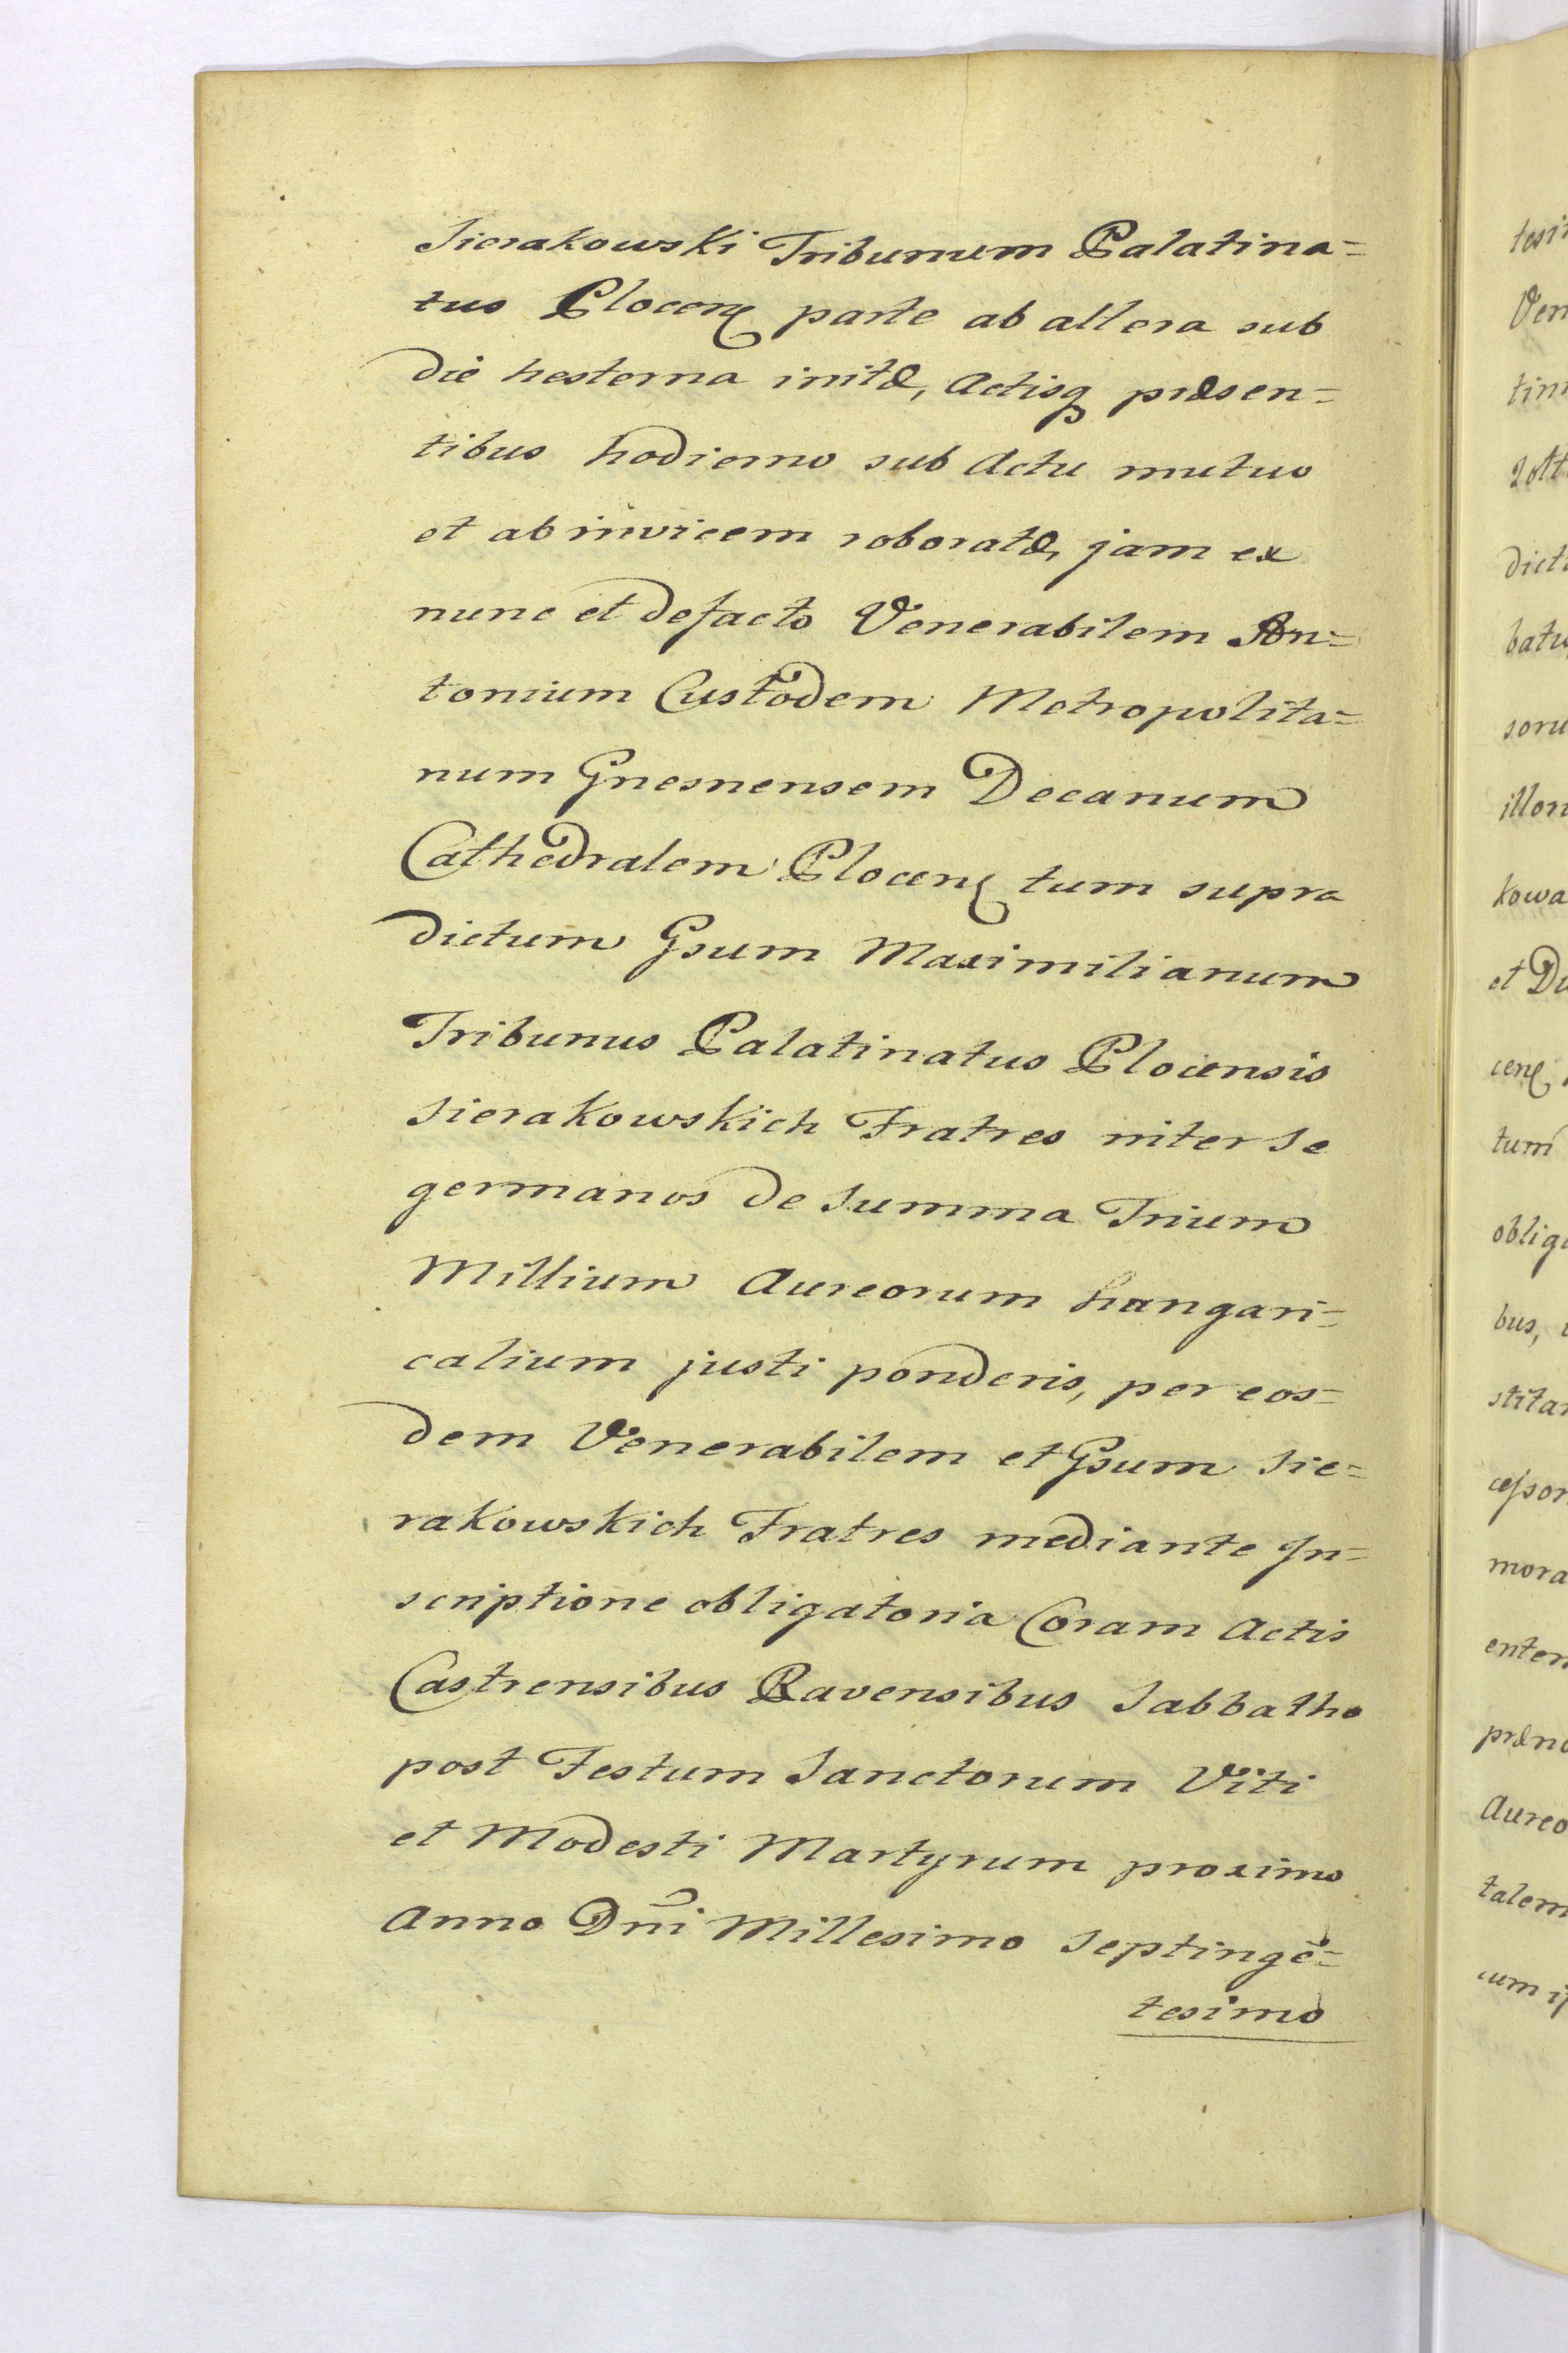 Sierakowski Tribunum Palatina=
tus Plocen parte ab altera sub
die hesterna initæ, Actisq præsen=
tibus hodierno sub Actu mutuo
et ab invicem roboratæ, jam ex
nunc et defacto Venerabilem An=
tonium Custodem Metropolita=
num Gnesnensem Decanum
Cathedralem Plocen tum supra
dictum Gsum Maximilianum
Tribunus Palatinatus Plocensis
Sierakowskich Fratres inter Se
germanos de Summa Trium
Millium Aureorum hungari=
calium justi ponderis, per eos=
dem Venerabilem et Gsum Sie=
rakowskich Fratres mediante In=
scriptione obligatoria Coram Actis
Castrensibus Ravensibus Sabbatho
post Festum Sanctorum Viti
et Modesti Martyrum proximo
Anno Dnĩ Millesimo Septingẽ=
tesimo
Ven
dict
batu
soru
illor
kowa
et Du
cen
tum
oblig
bus,
stita
cessor
mora
enter
præno
Aureo
talem
cum